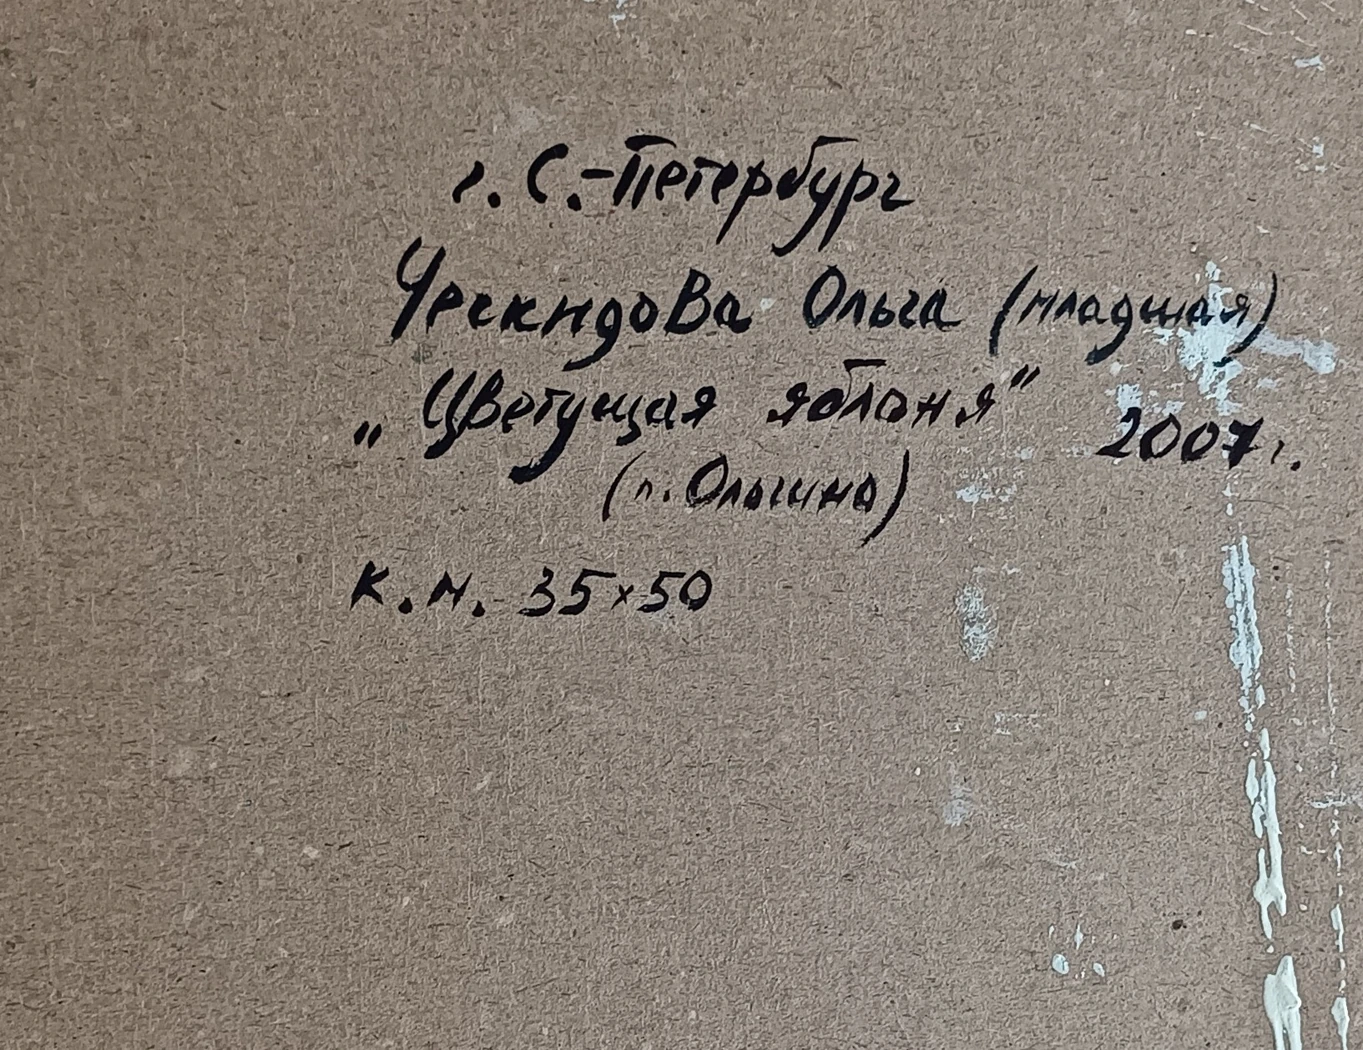 г. С.-Петербург
Ческидова Ольга (младшая)
„Цветущая яблоня” 2007г.
(п. Ольгино)
к. м. 35×50